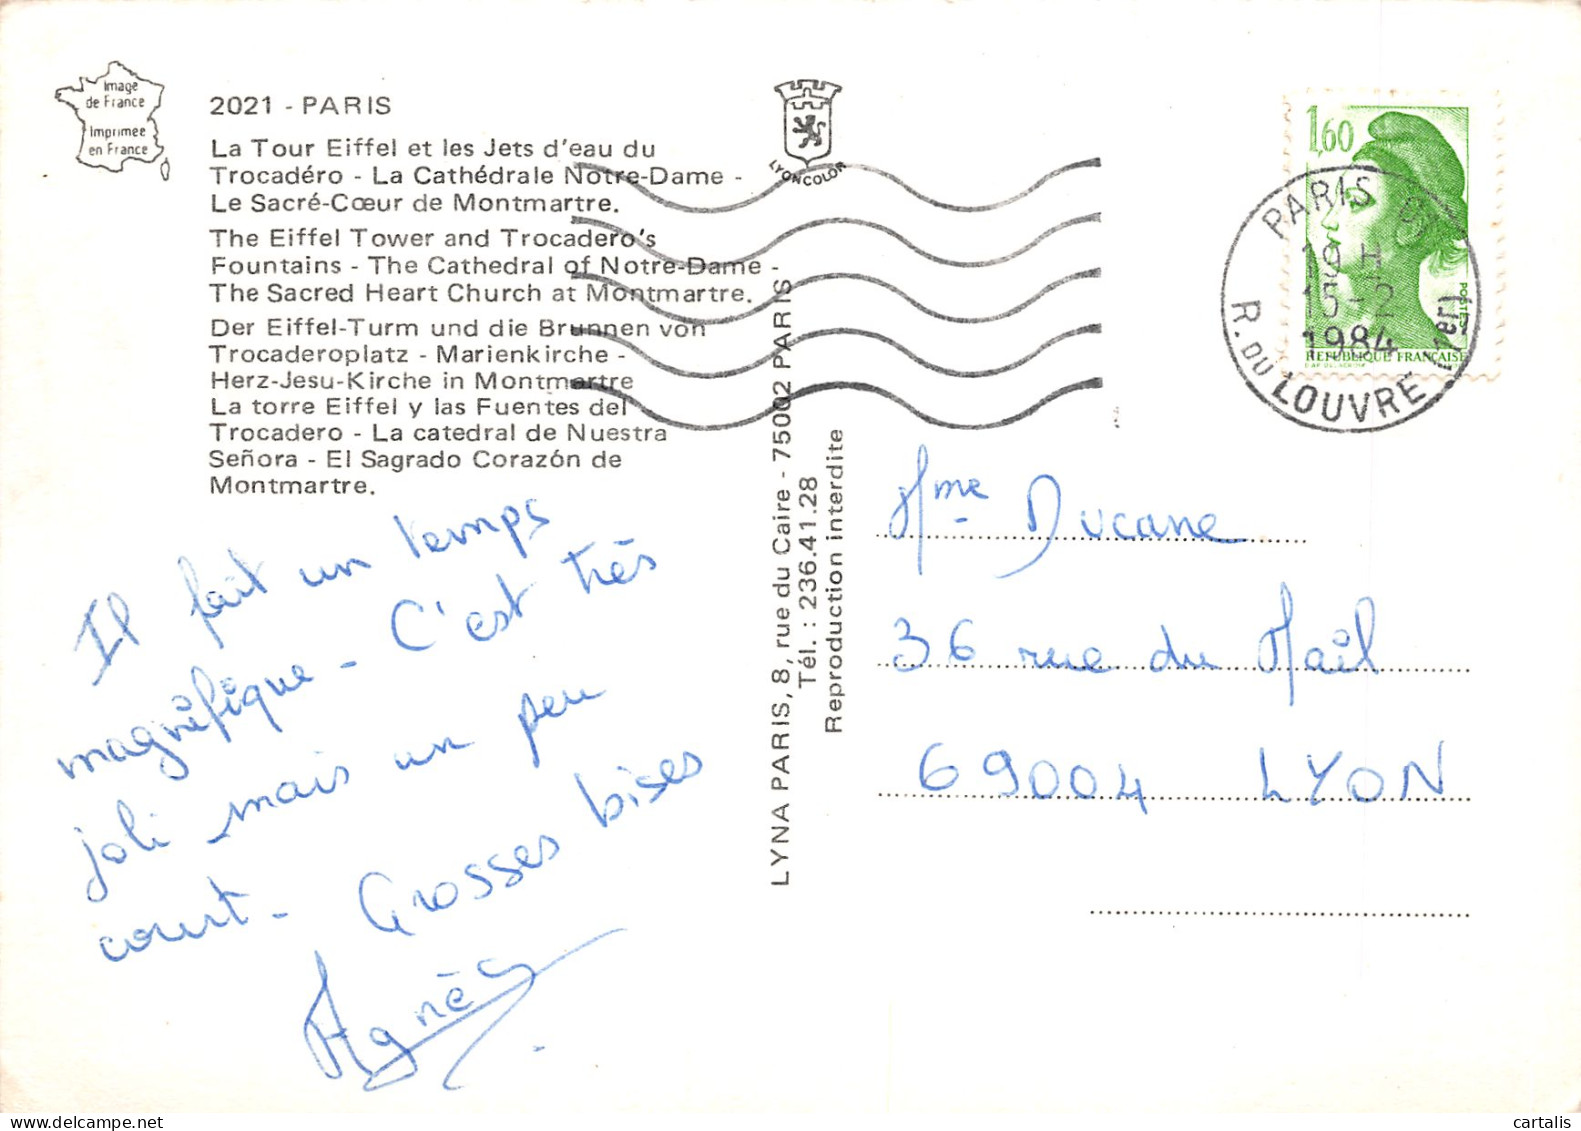 Image
de France
Imprimée
en France
2021 - PARIS
La Tour Eiffel et les Jets d'eau du
Trocadéro - La Cathédrale Notre-Dame -
Le Sacré-Cœur de Montmartre.
The Eiffel Tower and Trocadero's
Fountains - The Cathedral of Notre-Dame -
The Sacred Heart Church at Montmartre.
Der Eiffel-Turm und die Brunnen von
Trocaderoplatz - Marienkirche -
Herz-Jesu-Kirche in Montmartre
La torre Eiffel y las Fuentes del
Trocadero - La catedral de Nuestra
Señora - El Sagrado Corazón de
Montmartre.
Il fait un temps
magnifique - C'est très
joli mais un peu
court - Grosses bises
Agnès
LYONCOLOR
LYNA PARIS, 8, rue du Caire - 75002 PARIS
Tél. : 236.41.28
Reproduction interdite
1,60
POSTES
REPUBLIQUE FRANÇAISE
PARIS 01
19 H
15-2
1984
R. DU LOUVRE (1er)
Mme Ducane
36 rue du Mail
69004 LYON
cartalis